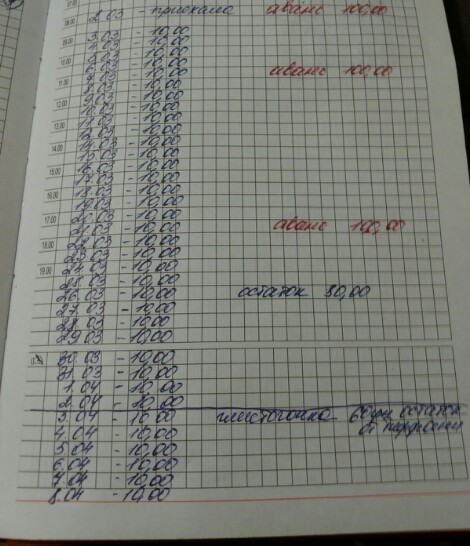 2.03 - приехала аванс 100,00
3.03 - 10,00
4.03 - 10,00
5.03 - 10,00
6.03 - 10,00 аванс 100,00
7.03 - 10,00
8.03 - 10,00
9.03 - 10,00
10.03 - 10,00
11.03 - 10,00
12.03 - 10,00
13.03 - 10,00
14.03 - 10,00
15.03 - 10,00
16.03 - 10,00
17.03 - 10,00
18.03 - 10,00
19.03 - 10,00
20.03 - 10,00
21.03 - 10,00 аванс 100,00
22.03 - 10,00
23.03 - 10,00
24.03 - 10,00
25.03 - 10,00
26.03 - 10,00 остаток 30,00
27.03 - 10,00
28.03 - 10,00
29.03 - 10,00
30.03 - 10,00
31.03 - 10,00
1.04 - 10,00
2.04 - 10,00
3.04 - 10,00 остаток
4.04 - 10,00
5.04 - 10,00
6.04 - 10,00
7.04 - 10,00
8.04 - 10,00